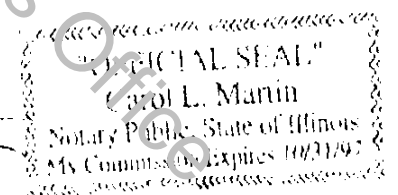 "OFFICIAL SEAL"
Carol L. Martin
Notary Public, State of Illinois
My Commission Expires 10/31/97
Office